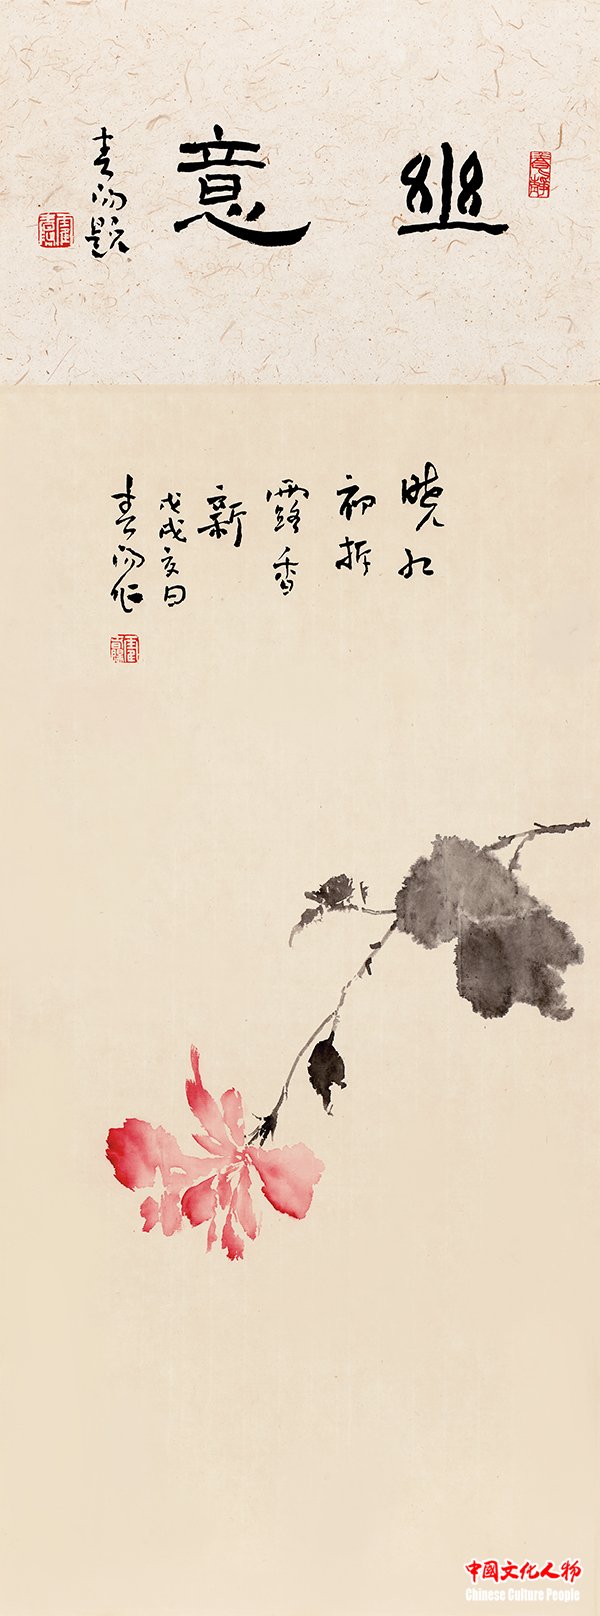 幽意
春阳題
晓红
初拆
露香
新
戊戌夏日
春阳作
中國文化人物
Chinese Culture People